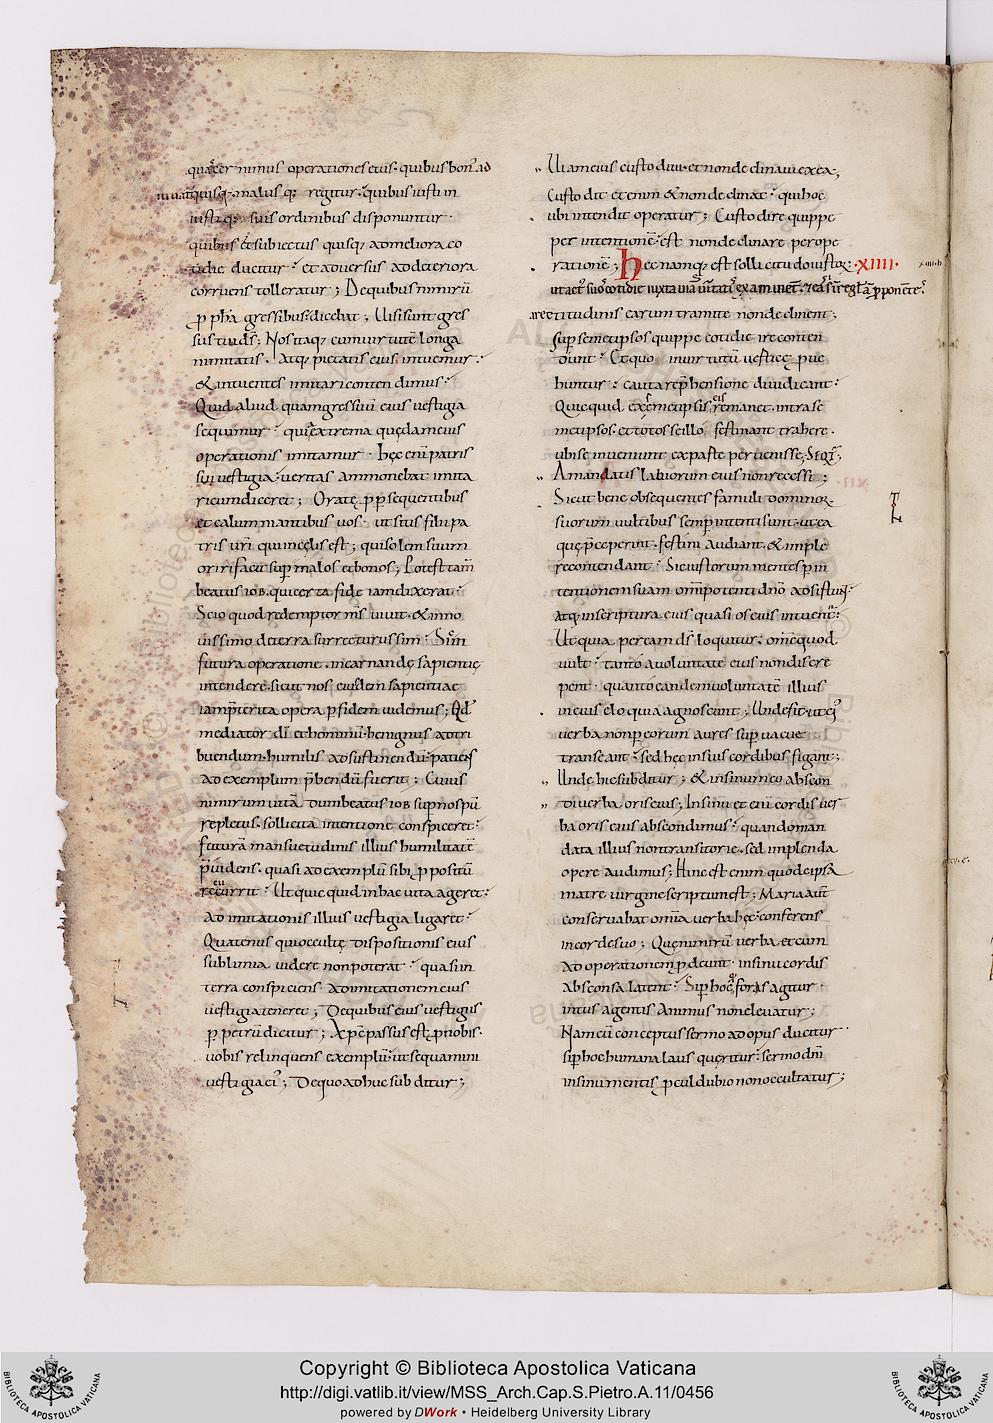 quaeter nimius operationes eius. quibus bon ad
iuuat quisq; malus q; regitur. quibus iusti in
iustiq; suis ordinibus disponuntur.
quibus et subiectus quisq; ad meliora co
tidie ducitur. et aduersus ad deteriora
corruens tolleratur; De quibus nimirū
ꝓ pħa gressibus dicebat; Uisi sunt gres
sus tui ds; Nos itaq; cum uirtutē longa
nimitatis. Atq; pietatis eius intuemur.
& intuentes imitari contendimus.
Quid aliud quam gressuū eius uestigia
sequimur. qui extrema quędam eius
operationis imitamur. hęc enī patris
sui uestigia ueritas ammonebat imita
ri cum diceret; Oratę ꝓ p sequentibus
et calumniantibus uos. ut sitis filii pa
tris uri qui in cęlis est; qui solem suum
oriri facit sup malos et bonos; Potest tam
beatus iob. qui certa fide iam dixerat.
Scio quod redemptor ms uiuit. & in no
uissimo de terra surrecturus sim.
futura operatione. incarnandę sapientię
intendere. sicut nos eiusdem sapientiae
iam p̄terita opera p fidem uidemus; Qd
mediator di et hominū. benignus ad tri
buendum. humilis ad sustinendū. patiens
ad exemplum p̄bendū fuerit; Cuius
nimirum uitā dum beatus iob sup no spū
repletus. sollicita intentione conspiceret.
futurā mansuetudinis illius humilitatē
p̄uidens. quasi ad exemplū sibi ꝓ positū
recurrit. Ut quicquid in hac uita ageret.
Ad imitationis illius uestigia ligaret.
Quatenus qui occultę dispositionis eius
sublimia uidere non poterat. quasi in
terra conspiciens. ad imitationem eius
uestigia teneret; De quibus eius uestigiis
p petrū dicitur; Xp̄c passus est ꝓ nobis.
uobis relinquens exemplū. ut sequamini
uestigia ei; De quo adhuc subditur;
Uiam eius custodiui. et non declinaui ex ea;
Custodit etenim & non declinat. qui hoc
ubi intendit operatur; Custodire quippe
per intentionē. est non declinare per ope
rationē; Hec namq; est sollicitudo iustor. XIIII.
ut act suos cotidie iuxta uiā ueritatis examinent.
a rectitudinis earum tramite non declinent;
Sup semetipsos quippe cotidie ire conten
dunt. Et quo in uirtutū uertice p̄ue
huntur. cauta rep̄hensione diuidicant.
Quicquid ex semetipsis eis remanet. intra se
metipsos. et totos se illo festinant trahere.
ubi se inueniunt ex parte peruenisse; Seq̄t;
A mandatis labiorum eius non recessi;
Sicut bene obsequentes famuli dominor
suorum uultibus semp intenti sunt. ut ea
quę p̄ceperint. festini audiant. & imple
re contendant. Sic iustorum mentes p in
tentionem suam omp̄otenti dnō adsistunt.
Atq; in scriptura eius quasi os eius intuentur.
Ut quia per eam ds loquitur. omē quod
uult. tanto a uoluntate eius non discre
pent. quanto eandem uoluntatē illius
in eius eloquia agnoscunt; Unde fit. ut ei
uerba non p eorum aures sup uacue
transeant. sed hęc in suis cordibus figant;
Unde hic subditur; & in sinu meo abscon
di uerba oris eius; In sinu et enī cordis uer
ba oris eius abscondimus. quando man
data illius non transitorie. sed implenda
opere audimus; Hinc est enim quod ipsa
matre uirgine scriptum est; Maria aut̄
conseruabat omīa uerba hęc. conferens
in corde suo; Quę nimirū uerba et cum
ad operationem ꝓdeunt. in sinu cordis
absconsa latent. Si p hoc qd foris agitur.
intus agentis animus non eleuatur;
Nam cū conceptus sermo ad opus ducitur.
si p hoc humana laus queritur. sermo dni
in sinu mentis ꝓcul dubio non occultatur;
Copyright © Biblioteca Apostolica Vaticana
http://digi.vatlib.it/view/MSS_Arch.Cap.S.Pietro.A.11/0456
powered by DWork • Heidelberg University Library
BIBLIOTECA APOSTOLICA VATICANA
BIBLIOTECA APOSTOLICA VATICANA